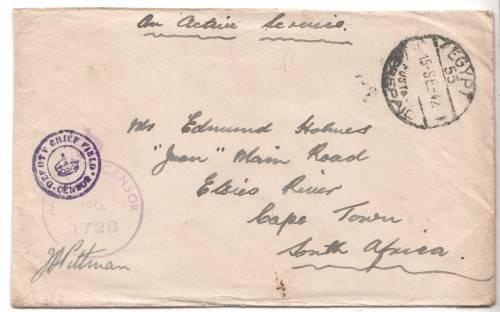 On Active Service.
EGYPT
55
15-SE-42
Mr Edmund Holmes
"Jean" Main Road
Elsies River
Cape Town
South Africa.
DEPUTY CHIEF FIELD CENSOR
CENSOR
NO.
1728
JWPittman